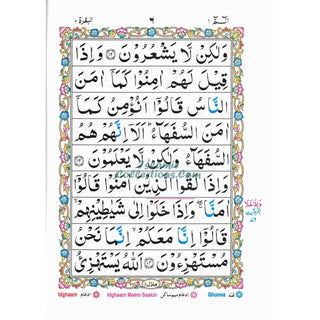 الٓمٓ ١ ٦ البقرة ٢
وَلٰكِنْ لَّا يَشْعُرُوْنَ ﴿١٢﴾ وَاِذَا
قِيْلَ لَهُمْ اٰمِنُوْا كَمَآ اٰمَنَ
النَّاسُ قَالُوْٓا اَنُؤْمِنُ كَمَآ
اٰمَنَ السُّفَهَآءُ ؕ اَلَآ اِنَّهُمْ هُمُ
السُّفَهَآءُ وَلٰكِنْ لَّا يَعْلَمُوْنَ ﴿١٣﴾
وَاِذَا لَقُوا الَّذِيْنَ اٰمَنُوْا قَالُوْٓا
اٰمَنَّا ۖۚ وَاِذَا خَلَوْا اِلٰى شَيٰطِيْنِهِمْ ۙ
قَالُوْٓا اِنَّا مَعَكُمْ ۙ اِنَّمَا نَحْنُ
مُسْتَهْزِءُوْنَ ﴿١٤﴾ اَللّٰهُ يَسْتَهْزِئُ
منزل ١
Idghaam ادغام Idghaam Meem Saakin ادغام میم ساکن Ghunna غنہ